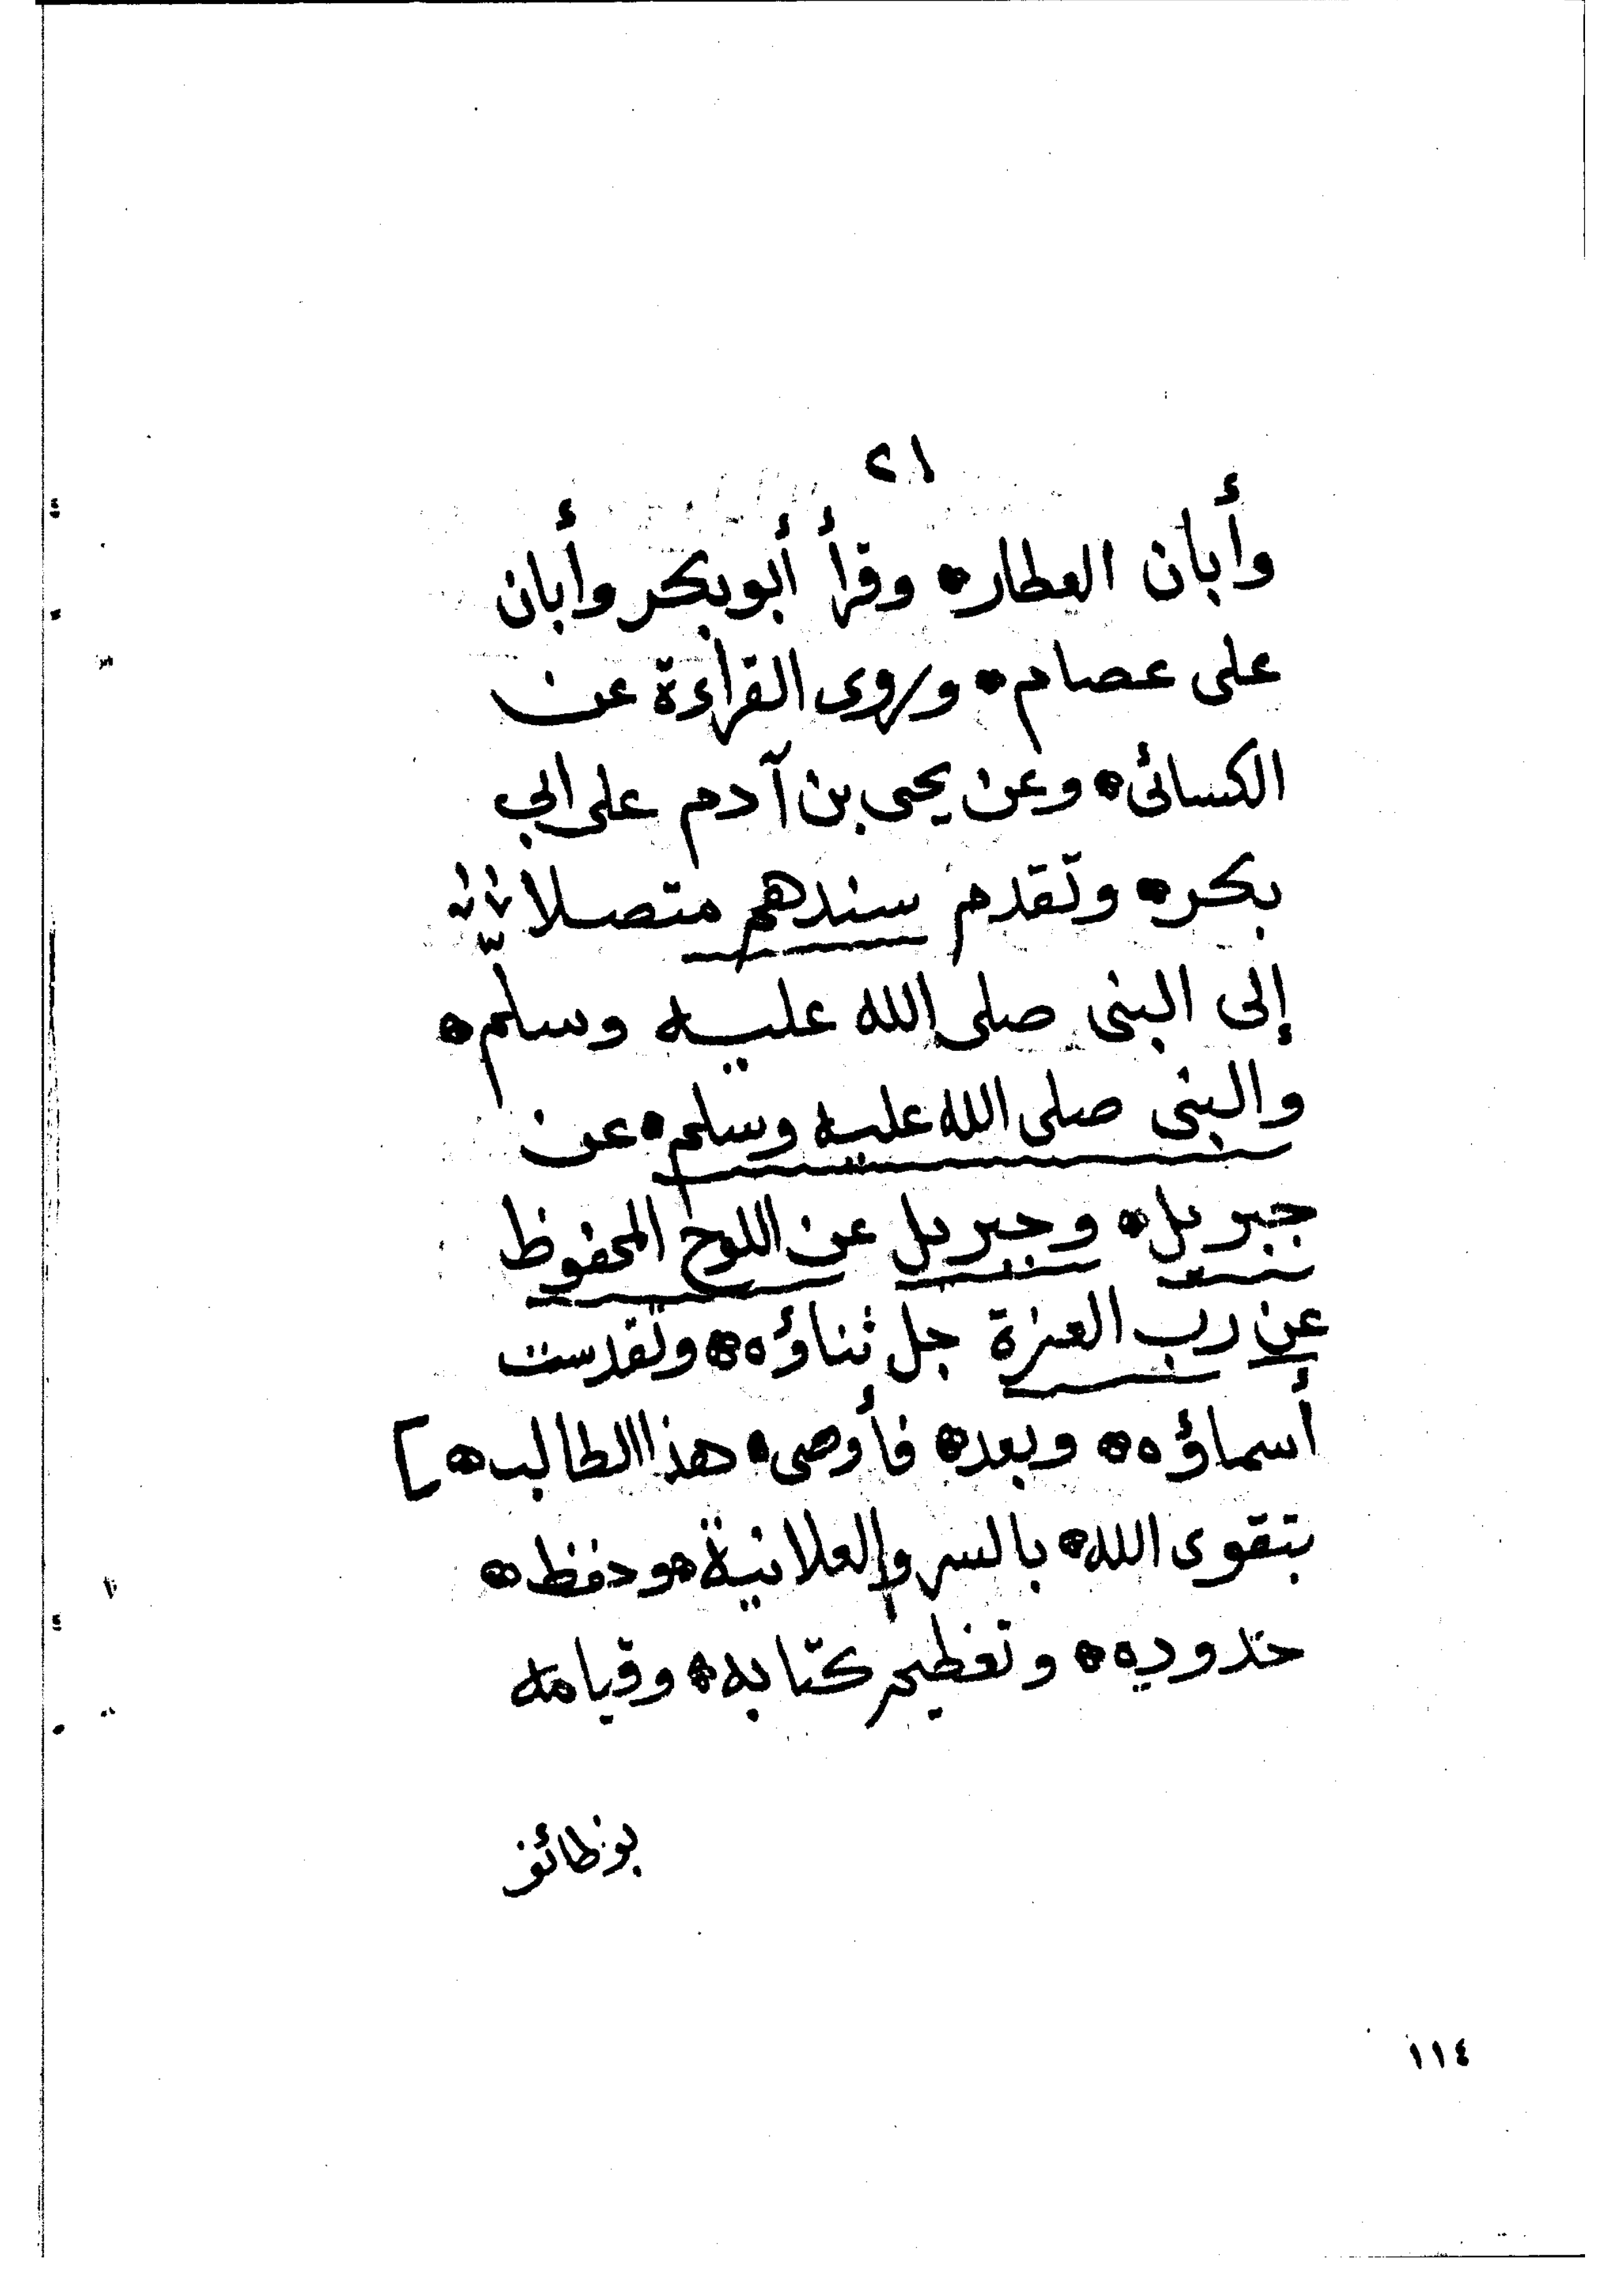 ٢١
وأبان العطار ۞ وقرأ أبو بكر وأبان
على عصام ۞ وروى القراءة عن
الكسائى ۞ وعن يحى بن آدم على ابي
بكر ۞ وتقدم سندهم متصلا
إلى النبى صلى الله عليه وسلم ۞
والنبى صلى الله عليه وسلم ۞ عن
جبريل ۞ وجبريل عن اللوح المحفوظ
عن رب العزة جل ثناؤه ۞ وتقدست
أسماؤه ۞ وبعد ۞ فأوصى ۞ هذا الطالب ۞ ]
بتقوى الله ۞ بالسر والعلانية ۞ وحفظ ۞
حدوده ۞ وتعظيم كتابه ۞ وقيامه
بوظائف
١١٤